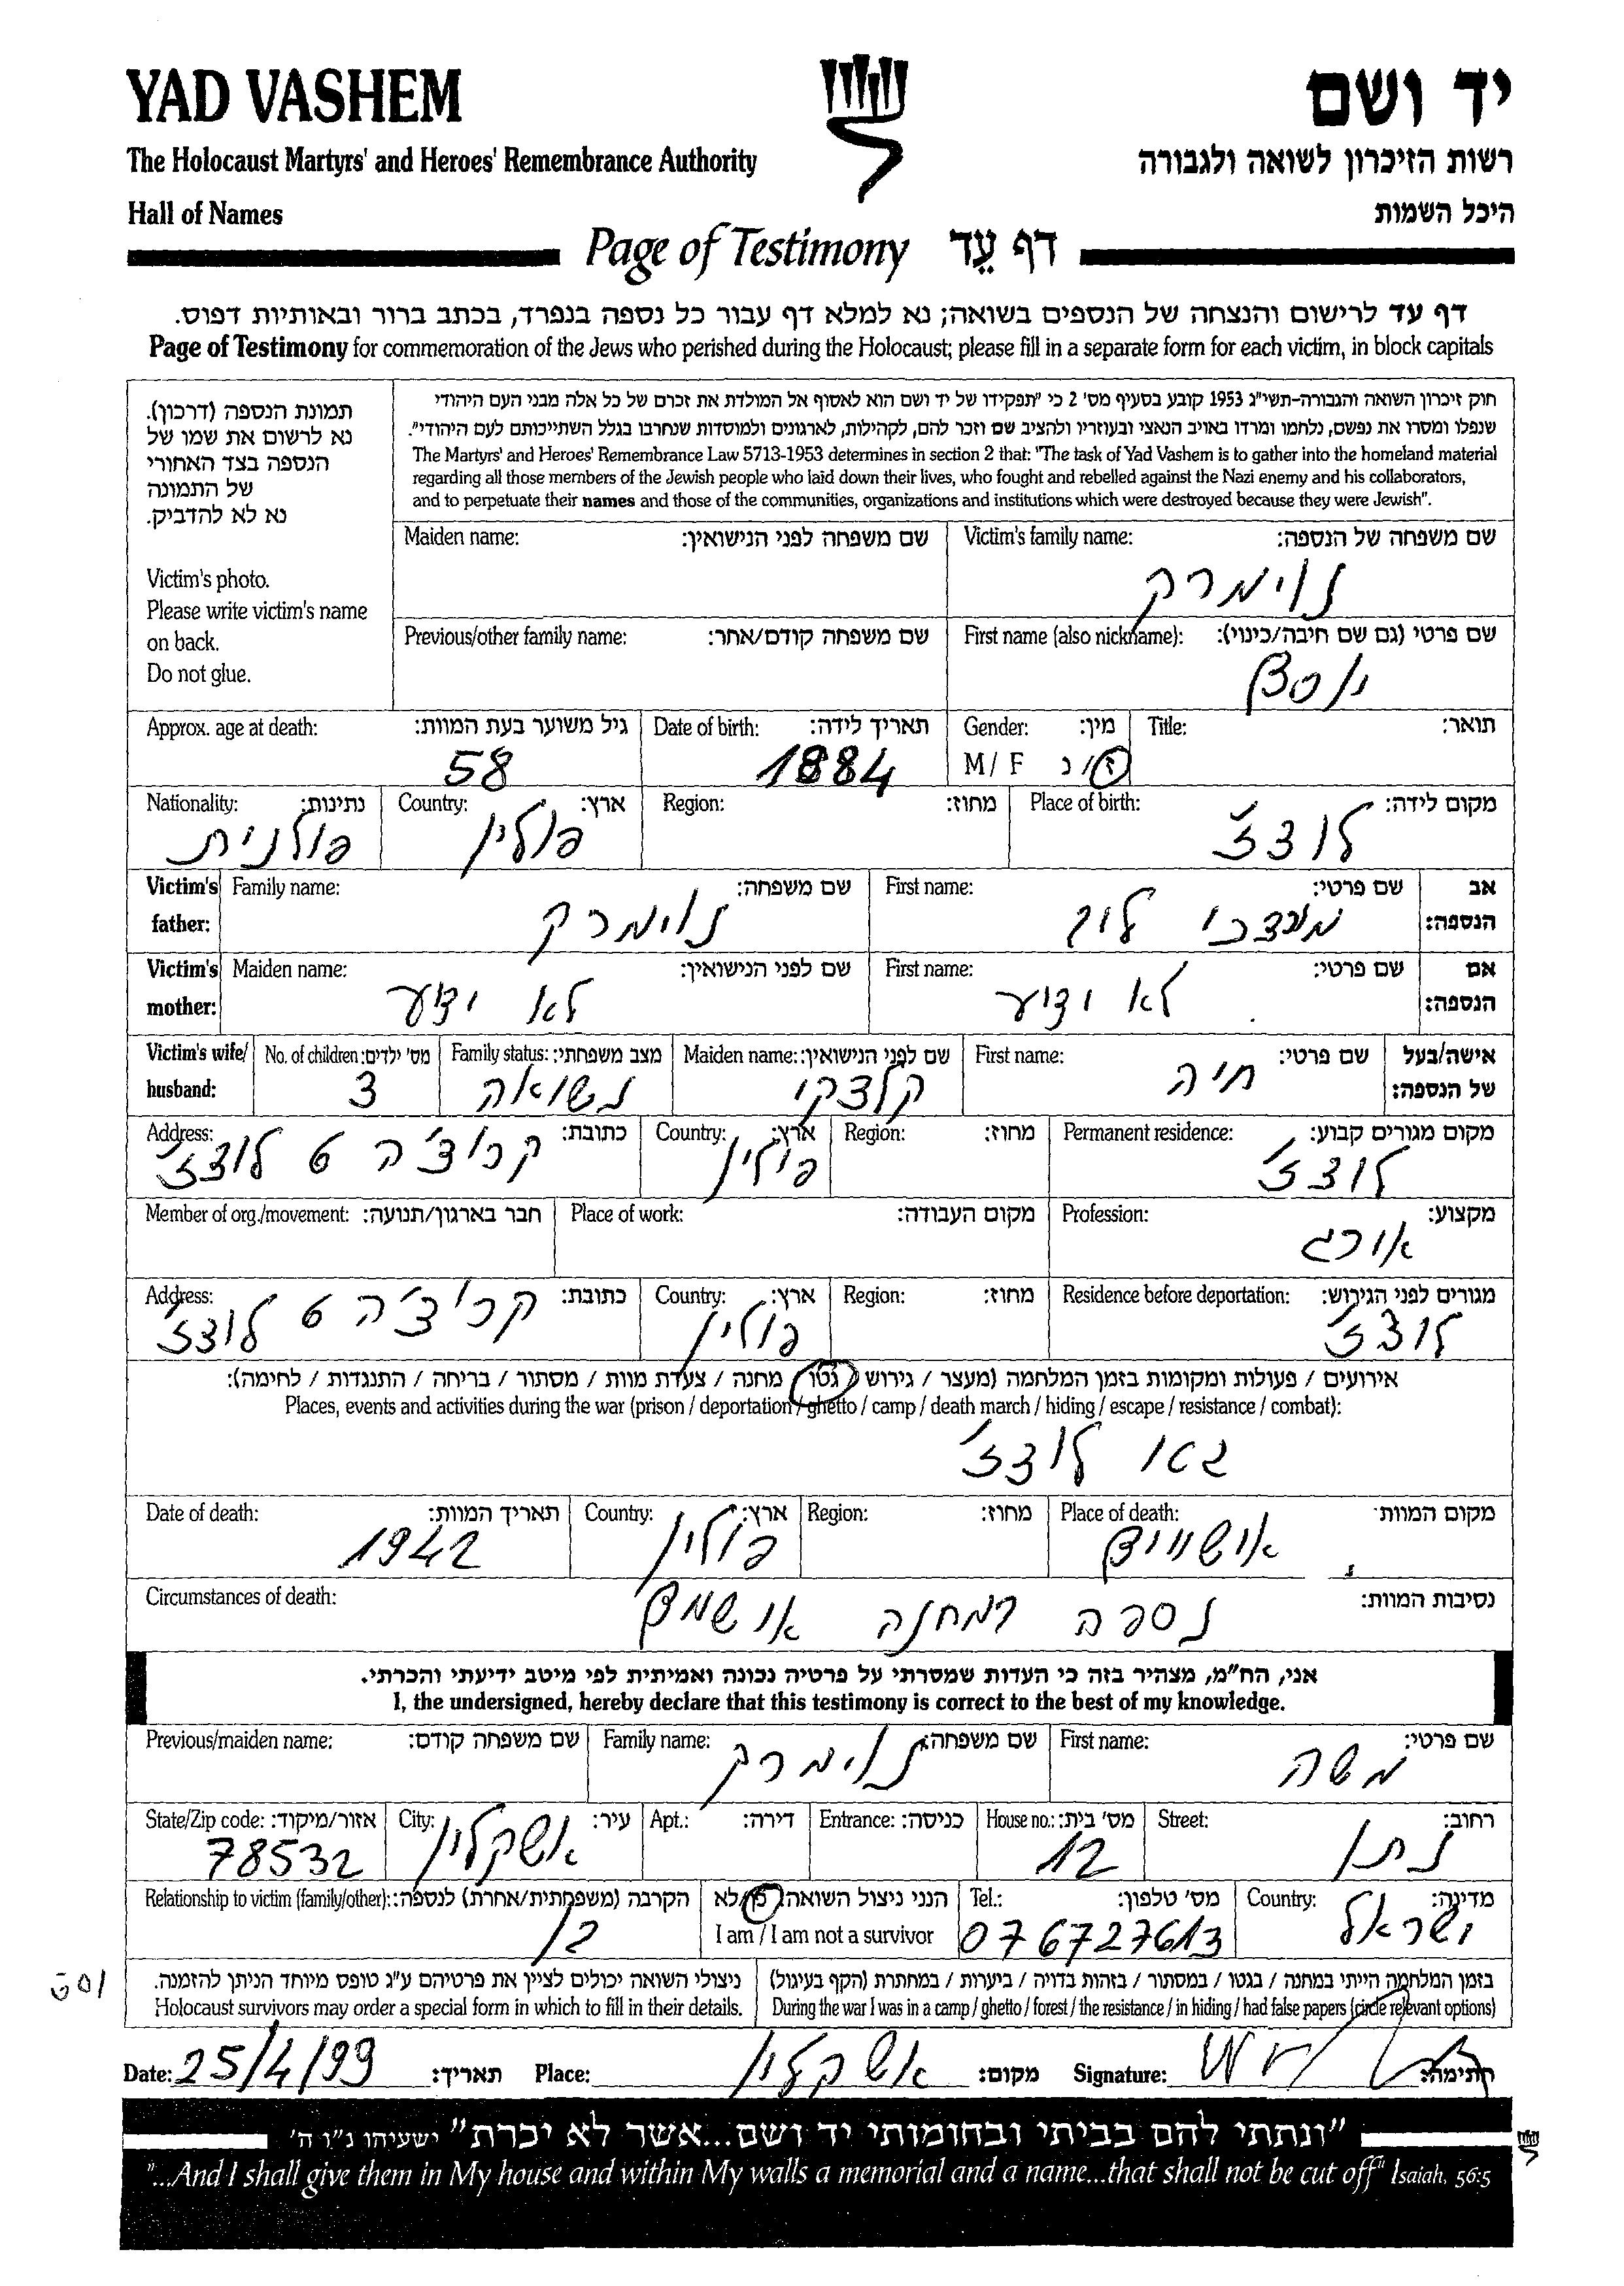 YAD VASHEM
יד ושם
The Holocaust Martyrs' and Heroes' Remembrance Authority
רשות הזיכרון לשואה ולגבורה
Hall of Names
היכל השמות
Page of Testimony דף עֵד
דף עד לרישום והנצחה של הנספים בשואה; נא למלא דף עבור כל נספה בנפרד, בכתב ברור ובאותיות דפוס.
Page of Testimony for commemoration of the Jews who perished during the Holocaust; please fill in a separate form for each victim, in block capitals
תמונת הנספה (דרכון).
נא לרשום את שמו של
הנספה בצד האחורי
של התמונה
נא לא להדביק.
Victim's photo.
Please write victim's name
on back.
Do not glue.
חוק זיכרון השואה והגבורה-תשי"ג 1953 קובע בסעיף מס' 2 כי "תפקידו של יד ושם הוא לאסוף אל המולדת את זכרם של כל אלה מבני העם היהודי
שנפלו ומסרו את נפשם, נלחמו ומרדו באויב הנאצי ובעוזריו ולהציב שם וזכר להם, לקהילות, לארגונים ולמוסדות שנחרבו בגלל השתייכותם לעם היהודי".
The Martyrs' and Heroes' Remembrance Law 5713-1953 determines in section 2 that: "The task of Yad Vashem is to gather into the homeland material
regarding all those members of the Jewish people who laid down their lives, who fought and rebelled against the Nazi enemy and his collaborators,
and to perpetuate their names and those of the communities, organizations and institutions which were destroyed because they were Jewish".
Victim's family name: שם משפחה של הנספה:
נוימרק
Maiden name: שם משפחה לפני הנישואין:
First name (also nickname): שם פרטי (גם שם חיבה/כינוי):
יוסף
Previous/other family name: שם משפחה קודם/אחר:
Title: תואר:
Gender: מין:
M / F ז / נ
Date of birth: תאריך לידה:
1884
Approx. age at death: גיל משוער בעת המוות:
58
Place of birth: מקום לידה:
לודז'
Region: מחוז:
Country: ארץ:
פולין
Nationality: נתינות:
פולנית
Victim's father: אב הנספה:
First name: שם פרטי:
מרדכי
Family name: שם משפחה:
נוימרק
Victim's mother: אם הנספה:
First name: שם פרטי:
לא ידוע
Maiden name: שם לפני הנישואין:
לא ידוע
Victim's wife/ husband: אישה/בעל של הנספה:
First name: שם פרטי:
חיה
Maiden name: שם לפני הנישואין:
קלצקי
Family status: מצב משפחתי:
נשואה
No. of children: מס' ילדים:
3
Permanent residence: מקום מגורים קבוע:
לודז'
Region: מחוז:
Country: ארץ:
פולין
Address: כתובת:
קרוצ'ה 6 לודז'
Profession: מקצוע:
אורג
Place of work: מקום העבודה:
Member of org./movement: חבר בארגון/תנועה:
Residence before deportation: מגורים לפני הגירוש:
לודז'
Region: מחוז:
Country: ארץ:
פולין
Address: כתובת:
קרוצ'ה 6 לודז'
אירועים / פעולות ומקומות בזמן המלחמה (מעצר / גירוש / גטו / מחנה / צעדת מוות / מסתור / בריחה / התנגדות / לחימה):
Places, events and activities during the war (prison / deportation / ghetto / camp / death march / hiding / escape / resistance / combat):
גטו לודז'
Place of death: מקום המוות
אושוויץ
Region: מחוז:
Country: ארץ:
פולין
Date of death: תאריך המוות:
1942
Circumstances of death: נסיבות המוות:
נספה במחנה אושויץ
אני, הח"מ, מצהיר בזה כי העדות שמסרתי על פרטיה נכונה ואמיתית לפי מיטב ידיעתי והכרתי.
I, the undersigned, hereby declare that this testimony is correct to the best of my knowledge.
First name: שם פרטי:
משה
Family name: שם משפחה:
נוימרק
Previous/maiden name: שם משפחה קודם:
Street: רחוב:
נתן
House no.: מס' בית:
12
Entrance: כניסה:
Apt.: דירה:
City: עיר:
אשקלון
State/Zip code: אזור/מיקוד:
78532
Country: מדינה:
ישראל
Tel.: מס' טלפון:
07 6727613
הנני ניצול השואה: כן/לא
I am / I am not a survivor
Relationship to victim (family/other): הקרבה (משפחתית/אחרת) לנספה:
בן
בזמן המלחמה הייתי במחנה / בגטו / במסתור / בזהות בדויה / ביערות / במחתרת (הקף בעיגול)
During the war I was in a camp / ghetto / forest / the resistance / in hiding / had false papers (circle relevant options)
ניצולי השואה יכולים לציין את פרטיהם ע"ג טופס מיוחד הניתן להזמנה.
Holocaust survivors may order a special form in which to fill in their details.
Date: 25/4/99 תאריך: Place: אשקלון מקום: Signature: חתימה:
"ונתתי להם בביתי ובחומותי יד ושם...אשר לא יכרת" ישעיהו נ"ו ה'
"...And I shall give them in My house and within My walls a memorial and a name...that shall not be cut off" Isaiah, 56:5